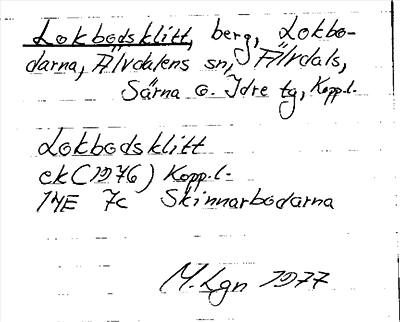 Lokbodsklitt, berg, Lokbo-
darna, Älvdalens sn, Älvdals,
Särna o. Idre tg, Kopp.l.
Lokbodsklitt
ek (1976) Kopp.l.
14E 7c Skinnarbodarna
M.Lgn 1977